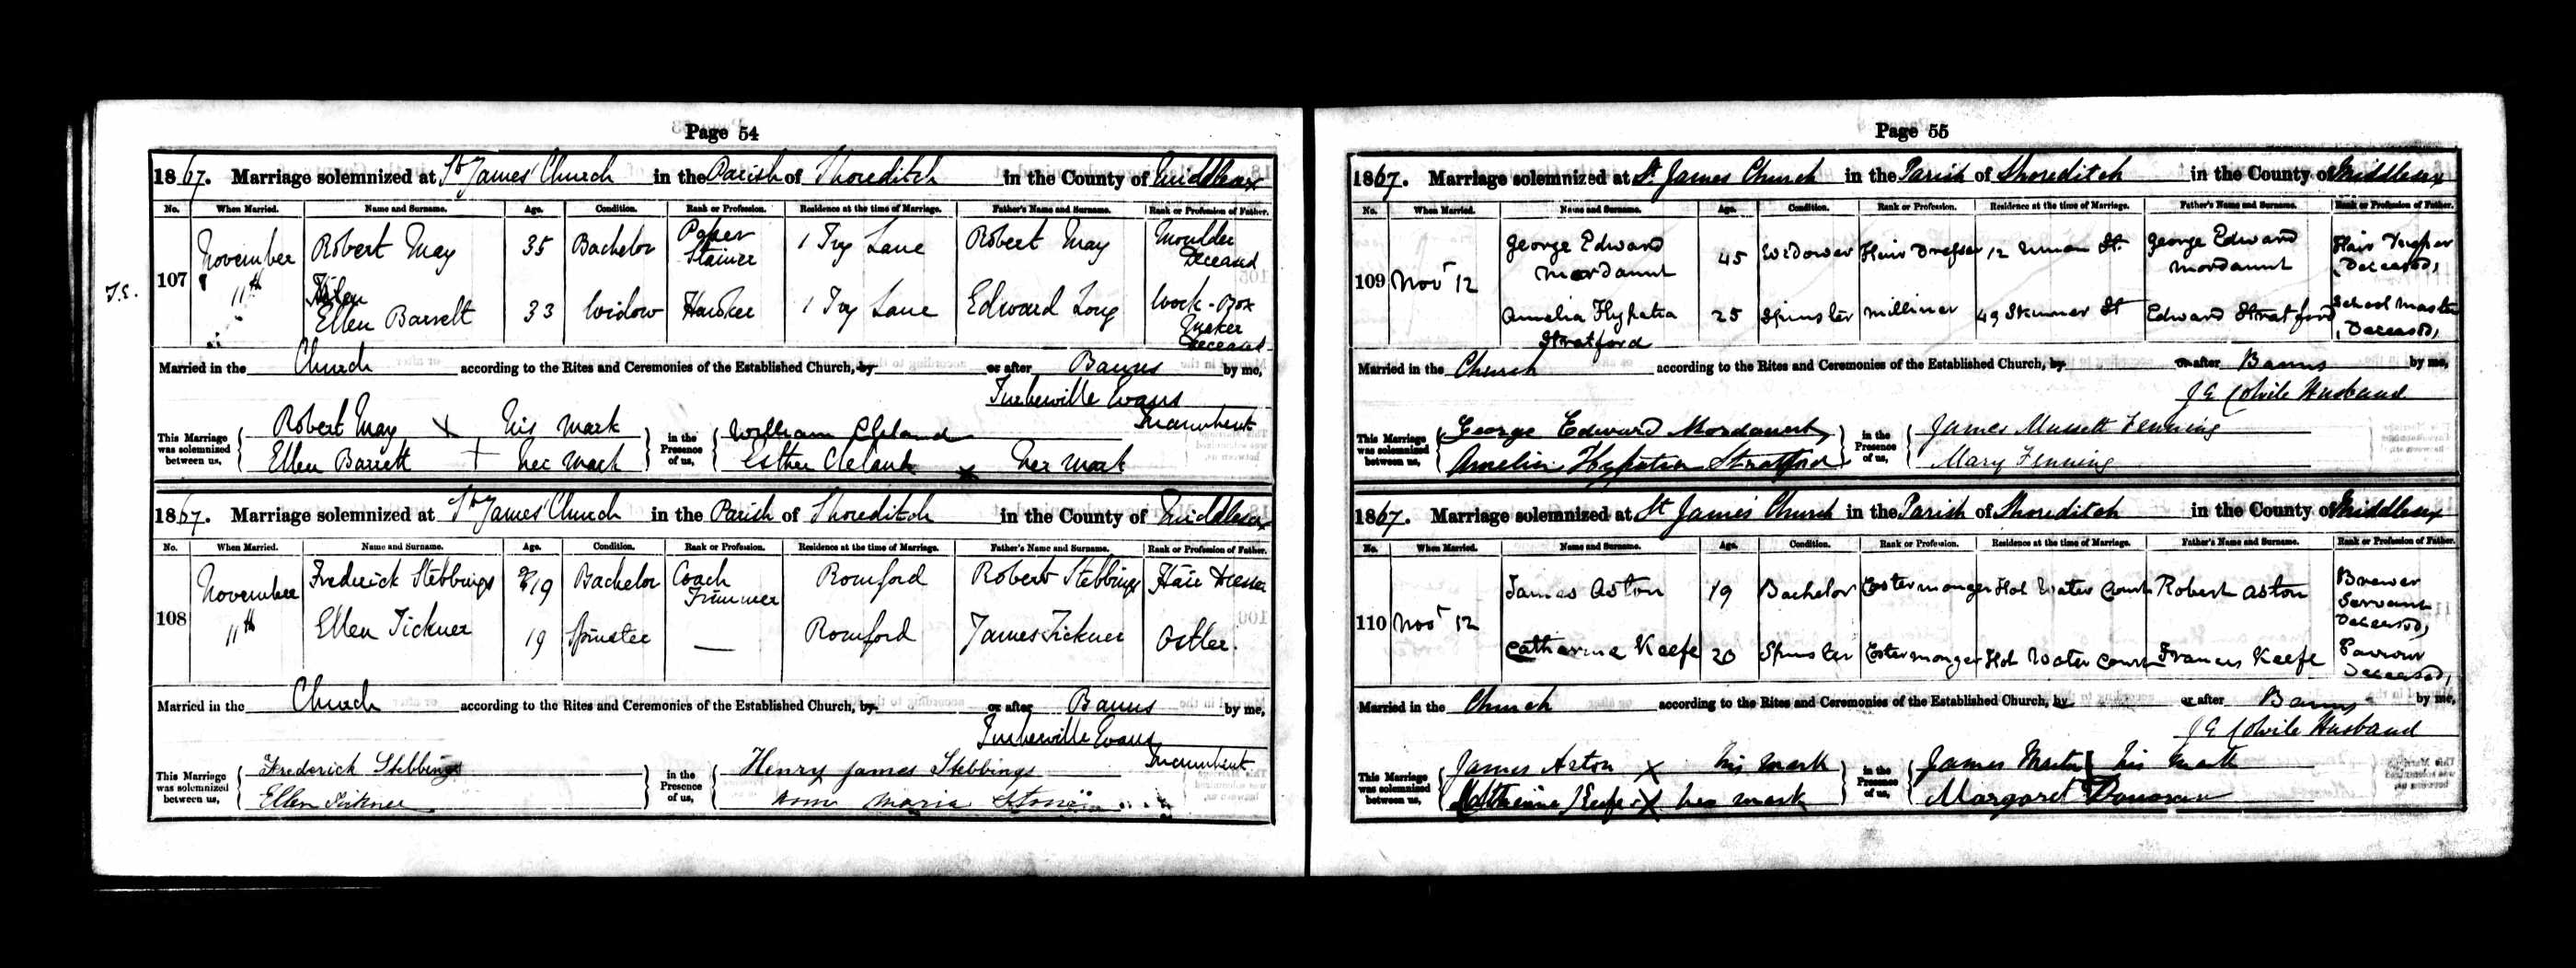 Page 54
1867. Marriage solemnized at St James' Church in the Parish of Shoreditch in the County of Middlesex
No. When Married. Name and Surname. Age. Condition. Rank or Profession. Residence at the time of Marriage. Father's Name and Surname. Rank or Profession of Father.
107 November 11th Robert May 35 Bachelor Paper Stainer 1 Ivy Lane Robert May Moulder Deceased
T.E. Ellen Barrett 33 Widow Hawker 1 Ivy Lane Edward Long Work-Box Maker Deceased
Married in the Church according to the Rites and Ceremonies of the Established Church, by or after Banns by me,
Turberville Evans
Incumbent
This Marriage was solemnized between us, Robert May X his mark in the Presence of us, William Cleland
Ellen Barrett + her mark Esther Cleland X her mark
1867. Marriage solemnized at St James' Church in the Parish of Shoreditch in the County of Middlesex
No. When Married. Name and Surname. Age. Condition. Rank or Profession. Residence at the time of Marriage. Father's Name and Surname. Rank or Profession of Father.
108 November 11th Frederick Stebbings 19 Bachelor Coach Trimmer Romford Robert Stebbings Hair Dresser
Ellen Tickner 19 Spinster — Romford James Tickner Ostler.
Married in the Church according to the Rites and Ceremonies of the Established Church, by or after Banns by me,
Turberville Evans
Incumbent
This Marriage was solemnized between us, Frederick Stebbings in the Presence of us, Henry James Stebbings
Ellen Tickner Maria
Page 55
1867. Marriage solemnized at St. James Church in the Parish of Shoreditch in the County of Middlesex
No. When Married. Name and Surname. Age. Condition. Rank or Profession. Residence at the time of Marriage. Father's Name and Surname. Rank or Profession of Father.
109 Novr 12 George Edward Mordaunt 45 Widower Hair Dresser 12 Union St. George Edward Mordaunt Hair Dresser (Deceased)
Amelia Hypatia Stratford 25 Spinster Milliner 49 Skinner St Edward Stratford School Master (Deceased)
Married in the Church according to the Rites and Ceremonies of the Established Church, by or after Banns by me,
J E Colvile Husband
This Marriage was solemnized between us, George Edward Mordaunt in the Presence of us, James Mussett Fenning
Amelia Hypatia Stratford Mary Fenning
1867. Marriage solemnized at St James' Church in the Parish of Shoreditch in the County of Middlesex
No. When Married. Name and Surname. Age. Condition. Rank or Profession. Residence at the time of Marriage. Father's Name and Surname. Rank or Profession of Father.
110 Novr 12 James Aston 19 Bachelor Costermonger Hot Water Court Robert Aston Brewer Servant Deceased,
Catharine Keefe 20 Spinster Costermonger Hot Water Court Francis Keefe Paviour Deceased,
Married in the Church according to the Rites and Ceremonies of the Established Church, by or after Banns by me,
J E Colvile Husband
This Marriage was solemnized between us, James Aston X his mark in the Presence of us, James his mark
Catherine Keefe X her mark Margaret Donovan